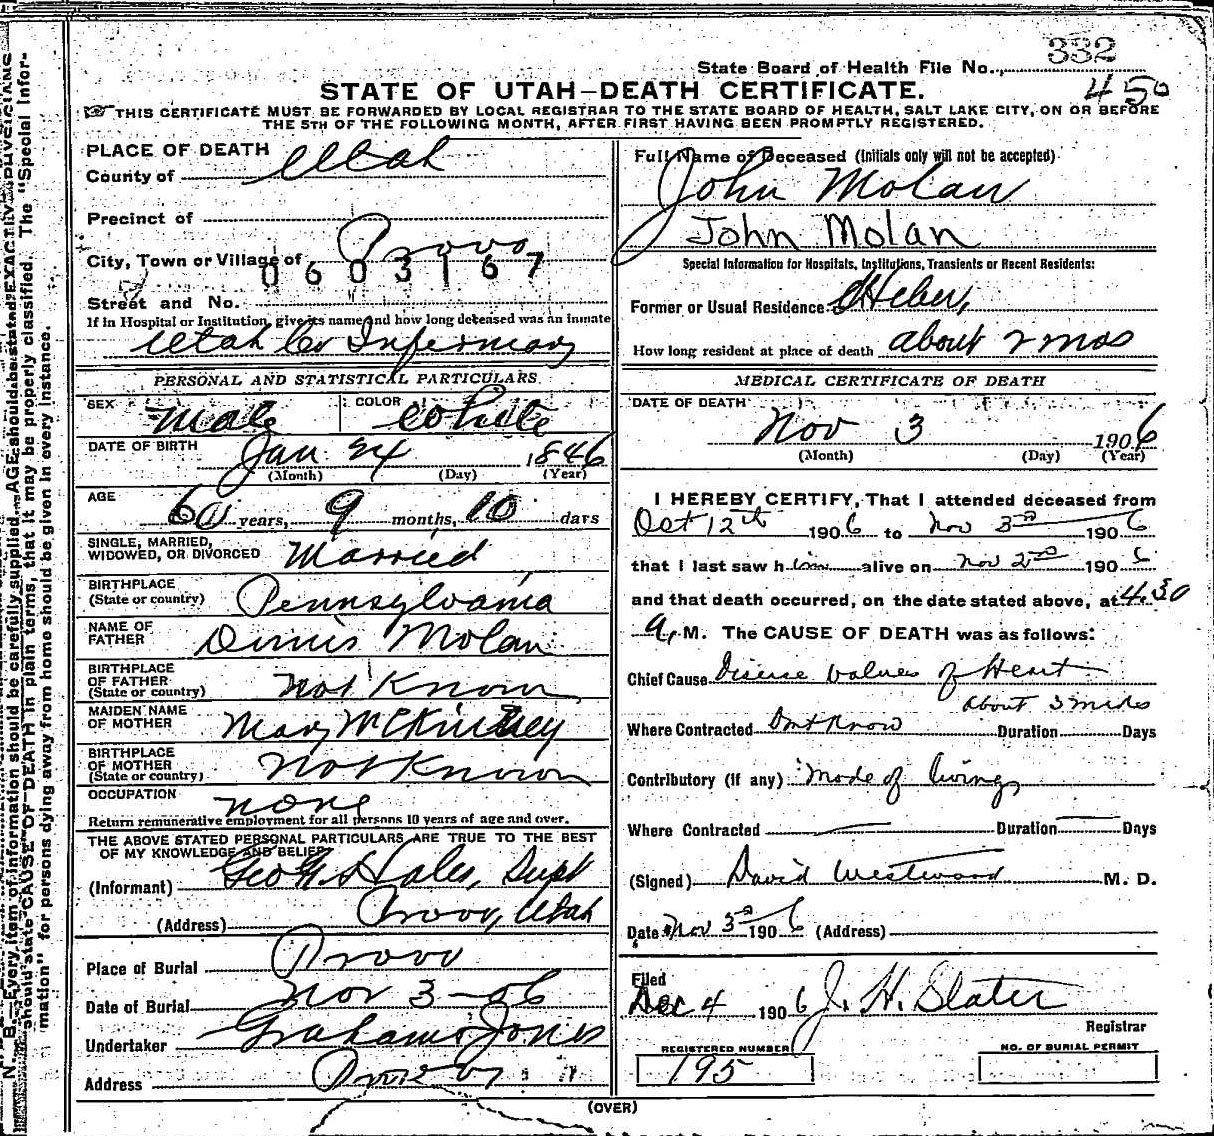 State Board of Health File No. 332
450
STATE OF UTAH—DEATH CERTIFICATE.
☞ THIS CERTIFICATE MUST BE FORWARDED BY LOCAL REGISTRAR TO THE STATE BOARD OF HEALTH, SALT LAKE CITY, ON OR BEFORE
THE 5TH OF THE FOLLOWING MONTH, AFTER FIRST HAVING BEEN PROMPTLY REGISTERED.
PLACE OF DEATH
County of Utah
Precinct of
City, Town or Village of Provo
0603167
Street and No.
If in Hospital or Institution, give its name and how long deceased was an inmate
Utah Co Infermary
PERSONAL AND STATISTICAL PARTICULARS
SEX Male COLOR White
DATE OF BIRTH Jan 24 1846
(Month) (Day) (Year)
AGE 60 years, 9 months, 10 days
SINGLE, MARRIED,
WIDOWED, OR DIVORCED Married
BIRTHPLACE
(State or country) Pennsylvania
NAME OF
FATHER Dinnis Molan
BIRTHPLACE
OF FATHER
(State or country) Not Known
MAIDEN NAME
OF MOTHER Mary McKinsey
BIRTHPLACE
OF MOTHER
(State or country) Not Known
OCCUPATION none
Return remunerative employment for all persons 10 years of age and over.
THE ABOVE STATED PERSONAL PARTICULARS ARE TRUE TO THE BEST
OF MY KNOWLEDGE AND BELIEF
(Informant) Geo Hales, Supt
(Address) Provo, Utah
Place of Burial Provo
Date of Burial Nov 3-06
Undertaker Graham Jones
Address Provo
Full Name of Deceased (Initials only will not be accepted)
John Molan
John Molan
Special Information for Hospitals, Institutions, Transients or Recent Residents:
Former or Usual Residence Heber,
How long resident at place of death about 2 mos
MEDICAL CERTIFICATE OF DEATH
DATE OF DEATH
Nov 3 1906
(Month) (Day) (Year)
I HEREBY CERTIFY, That I attended deceased from
Oct 12th 1906 to Nov 3rd 1906
that I last saw him alive on Nov 2nd 1906
and that death occurred, on the date stated above, at 4.30
A. M. The CAUSE OF DEATH was as follows:
Chief Cause Disease valves of Heart
about 3 mos
Where Contracted Dont Know Duration Days
Contributory (if any) Mode of living
Where Contracted Duration Days
(Signed) David Westwood M. D.
Date Nov 3rd 1906 (Address)
Filed
Dec 4 1906 J. H. Slater
Registrar
REGISTERED NUMBER
195
NO. OF BURIAL PERMIT
(OVER)
N. B.—Every item of information should be carefully supplied. AGE should be stated EXACTLY. PHYSICIANS
should state CAUSE OF DEATH in plain terms, that it may be properly classified. The "Special Infor-
mation" for persons dying away from home should be given in every instance.